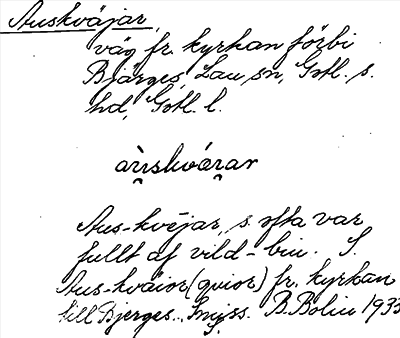 Auskväjar,
väg fr. kyrkan förbi
Bjärges, Lau sn, Gotl. s.
hd, Gotl. l.
Aus-kvejar, s. ofta var
fullt af vild-bin. S.
Aus-kväior (qvior) fr. kyrkan
till Bjerges. Smiss. B. Bolin 1933